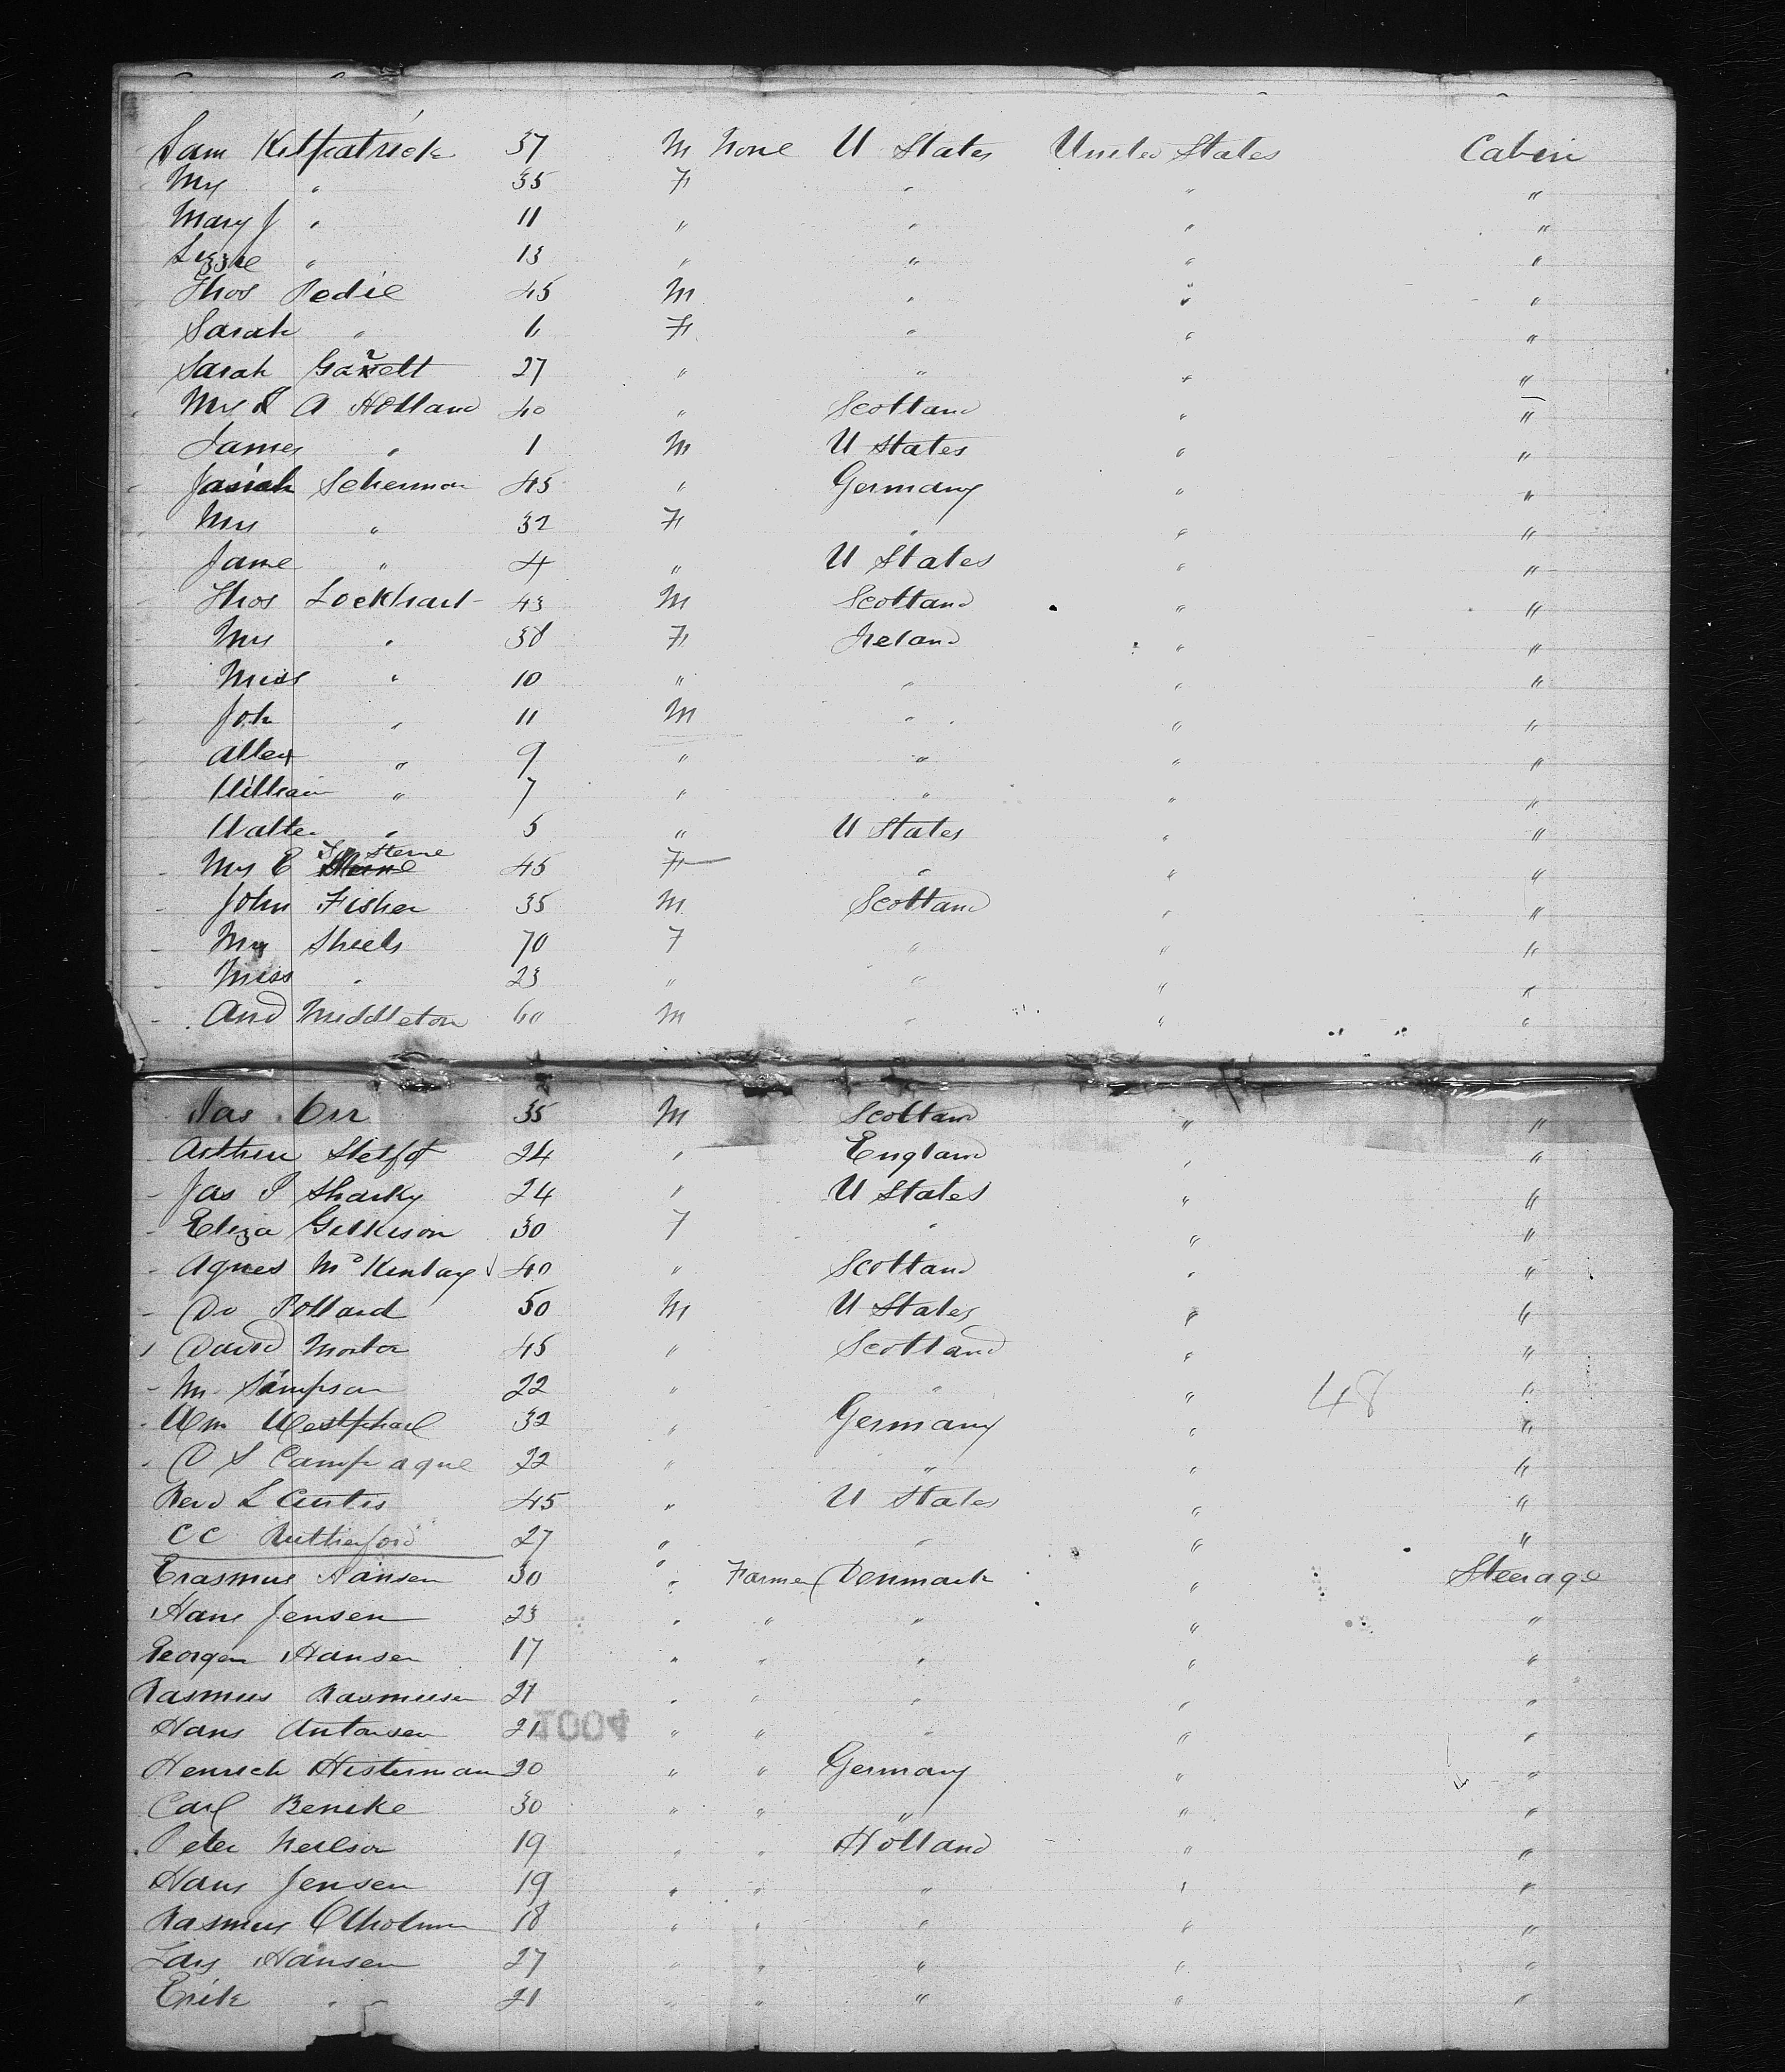 Sam Kilpatrick 37 M None U States United States Cabin
Mrs " 35 F " " "
Mary J " 11 " " " "
Lizzie " 13 " " " "
Thos Pedie 45 M " " "
Sarah " 6 F " " "
Sarah Garrett 27 " " " "
Mrs A Holland 40 " Scotland " "
James " 1 M U States " "
Josiah Scherman 45 " Germany " "
Mrs " 32 F " " "
Jane " 4 " U States " "
Thos Lockhart 43 M Scotland " "
Mrs " 38 F Ireland " "
Miss " 10 " " " "
Joh " 11 M " " "
Allex " 9 " " " "
William " 7 " " " "
Walter " 5 " U States " "
Mrs E Sterne 45 F " " "
John Fisher 35 M Scotland " "
Mrs Shiels 70 F " " "
Miss " 23 " " " "
And Middleton 60 M " " "
Jas Orr 35 M Scotland " "
Arthur 24 " England " "
Jas P Sharky 24 " U States " "
Eliza Gilkison 30 F " " "
Agnes McKinlay 40 " Scotland " "
Dr Pollard 50 M U States " "
David Morton 45 " Scotland " "
Mr Sampson 22 " " " "
48
Wm Westphael 32 " Germany " "
D S Campagne 22 " " " "
Revd L Curtis 45 " U States " "
C C Rutherford 27 " " " "
Erasmus Hansen 30 " Farmer Denmark " Steerage
Hans Jensen 23 " " " " "
Georgen Hansen 17 " " " " "
Rasmus Rasmusen 21 " " " " "
Hans Antonsen 21 " " " " "
1004
Henrich Histerman 20 " " Germany " "
Carl Beneke 30 " " " " "
Peter Neilson 19 " " Holland " "
Hans Jensen 19 " " " " "
Rasmus 18 " " " " "
Lars Hansen 27 " " " " "
Erik " 21 " " " " "